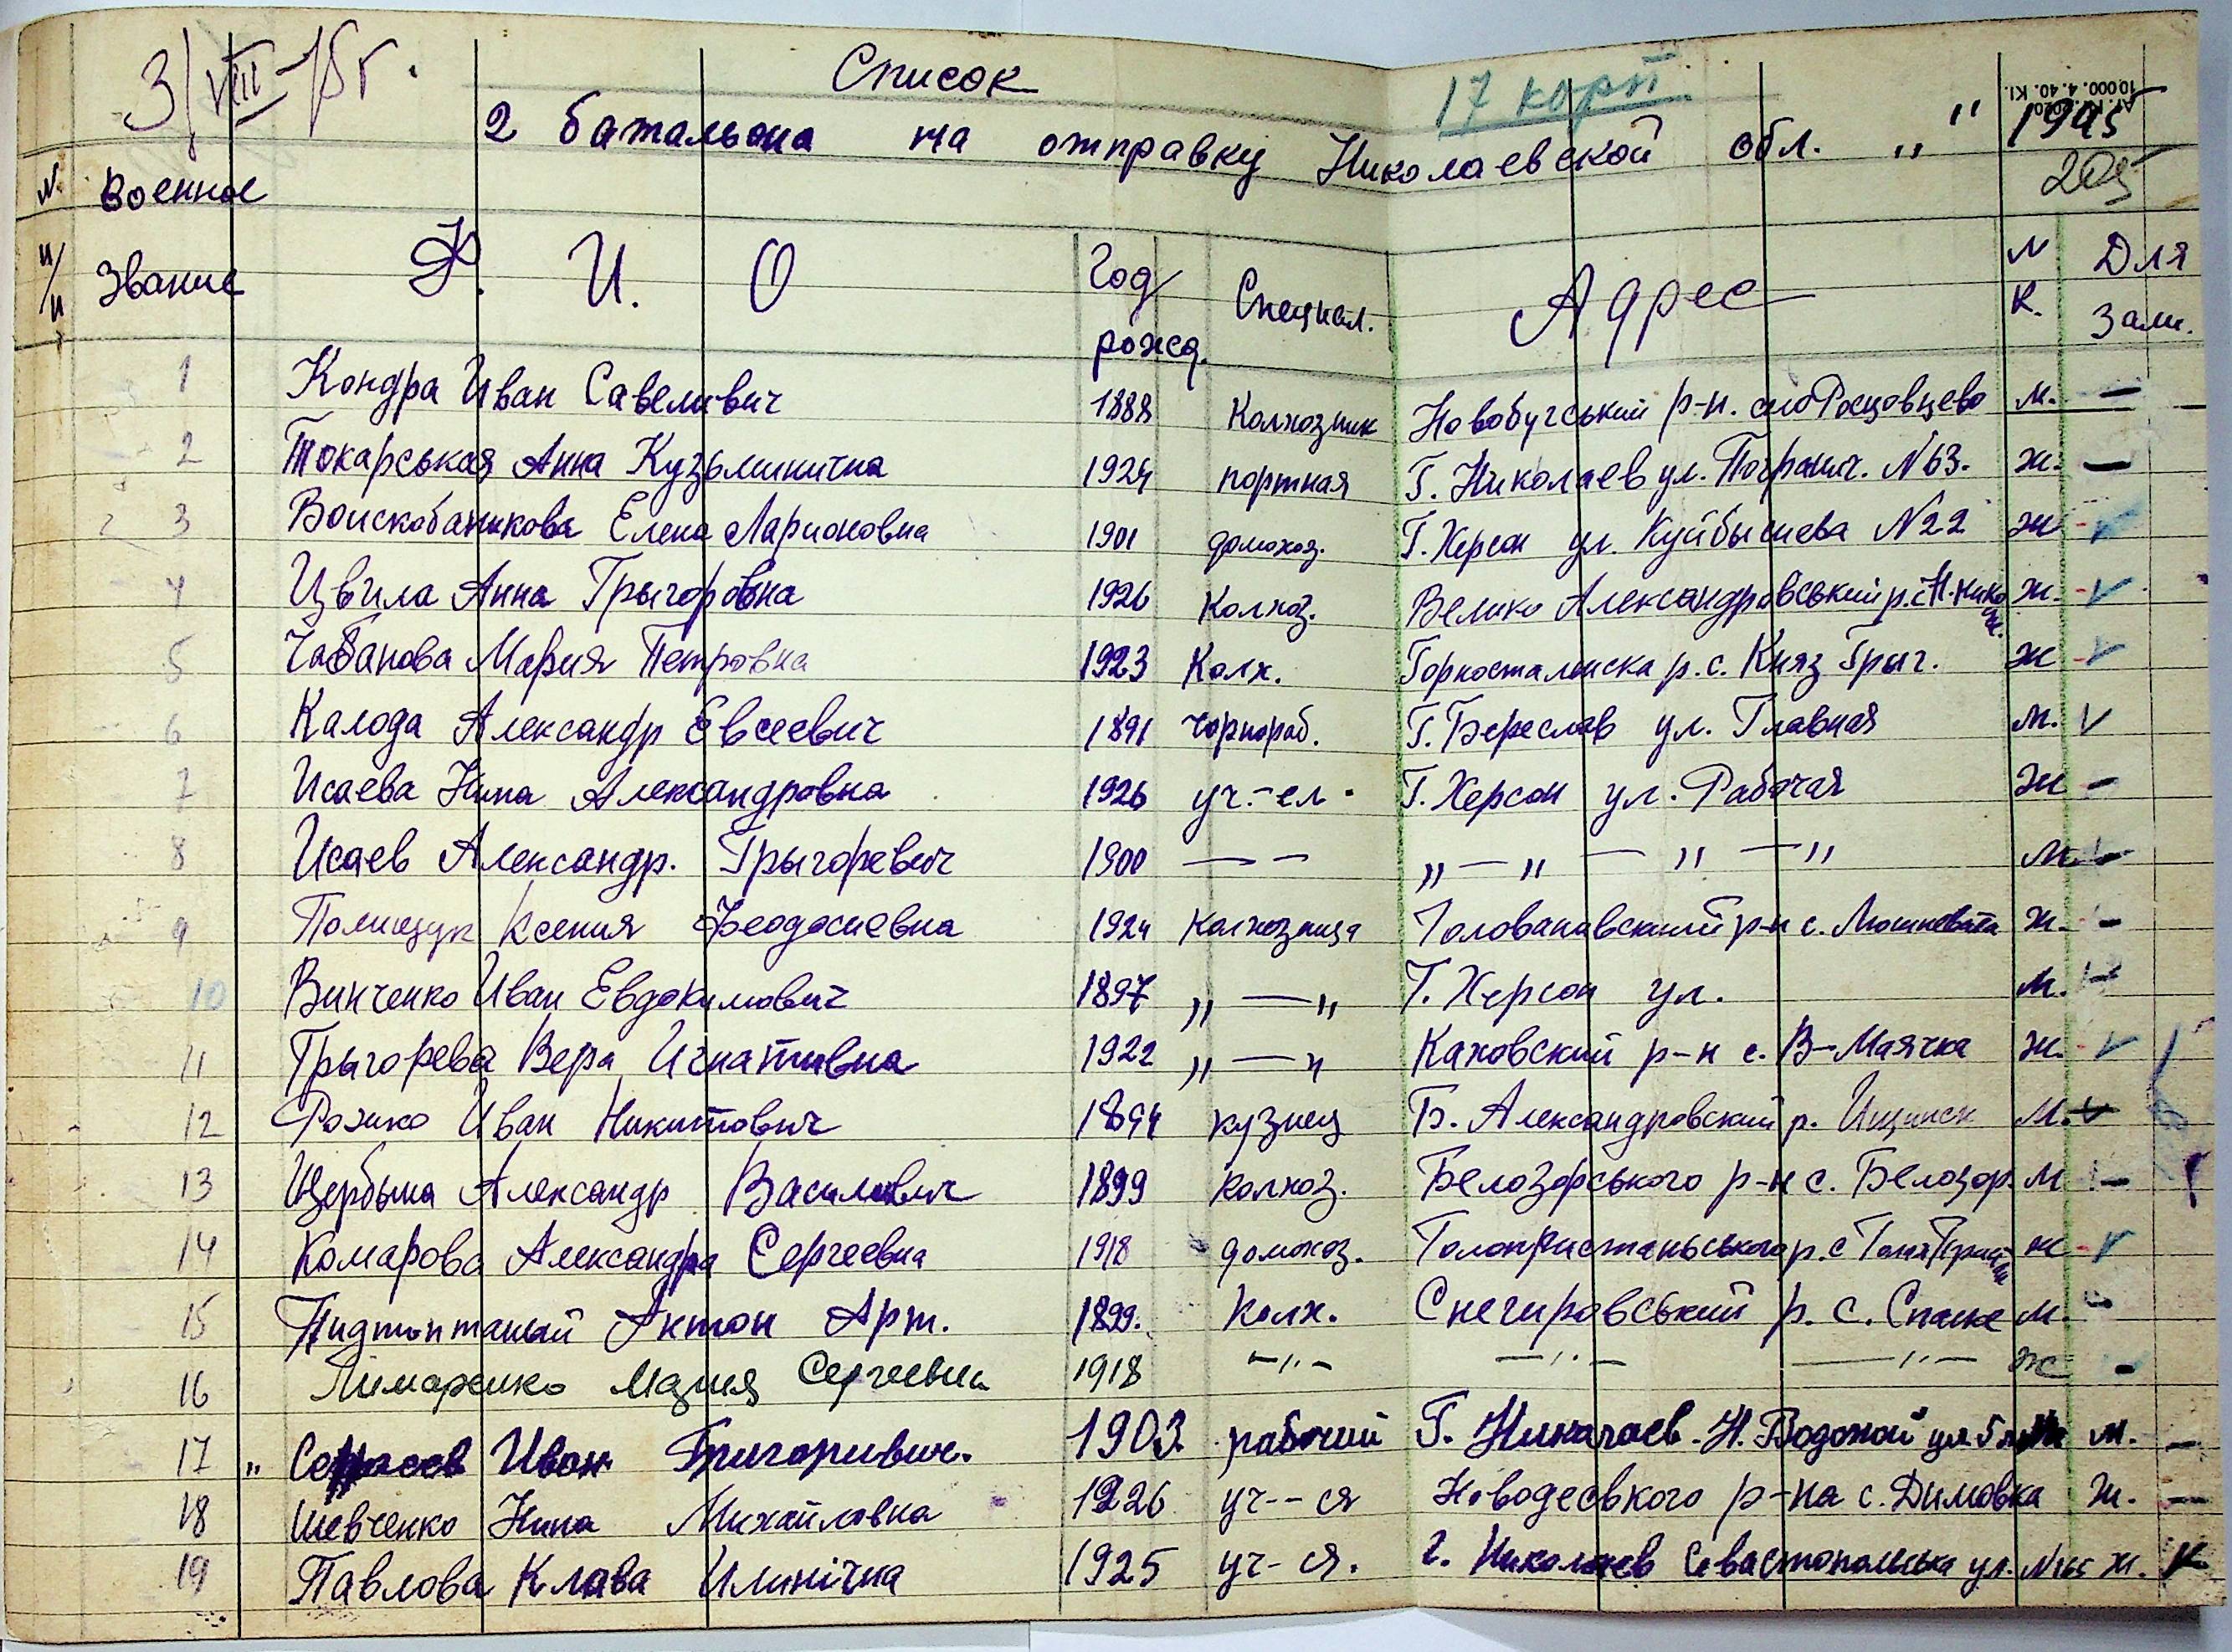 3/VIII-45 г.
Список
17 корп.
10.000. 4. 40. Kl.
2 батальона на отправку Николаевской обл. „ “ 1945
205
№ п/п Военное Звание Ф. И. О Год рожд. Специал. Адрес № К. Для Зам.
1 Кондра Иван Савеливич 1888 Колхозник Новобугський р-н. село м. —
2 Токарськая Анна Кузьминична 1924 портная Г. Николаев ул. Погранич. N 63. ж. —
3 Елена Ларионовна 1901 домохоз. Г. Херсон ул. Куйбышева N 22 ж v
4 Цвила Анна Грыгоровна 1926 Колхоз. Велико Александровський р. ж. v
5 Чабанова Мария Петровна 1923 Колх. р. с. Княз Грыг. ж v
6 Калода Александр Евсеевич 1891 чорнораб. Г. Береслав ул. Главная м. v
7 Исаева Нина Александровна 1926 уч.-ел. Г. Херсон ул. Рабочая ж —
8 Исаев Александр. Грыгоревич 1900 — — „ — „ — „ — „ м.
9 Полищук Ксения Феодосиевна 1924 Колхозница р-н с. ж. —
10 Винченко Иван Евдокимович 1897 „ — „ Г. Херсон ул. м.
11 Грыгорева Вера Игнативна 1922 „ — „ Каховский р-н с. В-Маячка ж. v
12 Иван Никитович 1894 кузнец Б. Александровский р. м. v
13 Щербына Александр Василивич 1899 колхоз. Белозорського р-н с. Белозор. м —
14 Комарова Александра Сергеевна 1918 домохоз. р. с ж v
15 Пидтоптаный Антон Арт. 1899. Колх. Снегировський р. с. м.
16 Лимаренко Мария Сергеевна 1918 — „ — — „ — — „ — ж —
17 „ Иван Григоривич. 1903 рабочий Г. Николаев - Н. Водопой ул. м. —
18 Шевченко Нина Михайловна 1926 уч--ся р-на с. Димовка ж. —
19 Павлова Клава Илинічна 1925 уч-ся. г. Николаев Севастопольська ул. ж. v